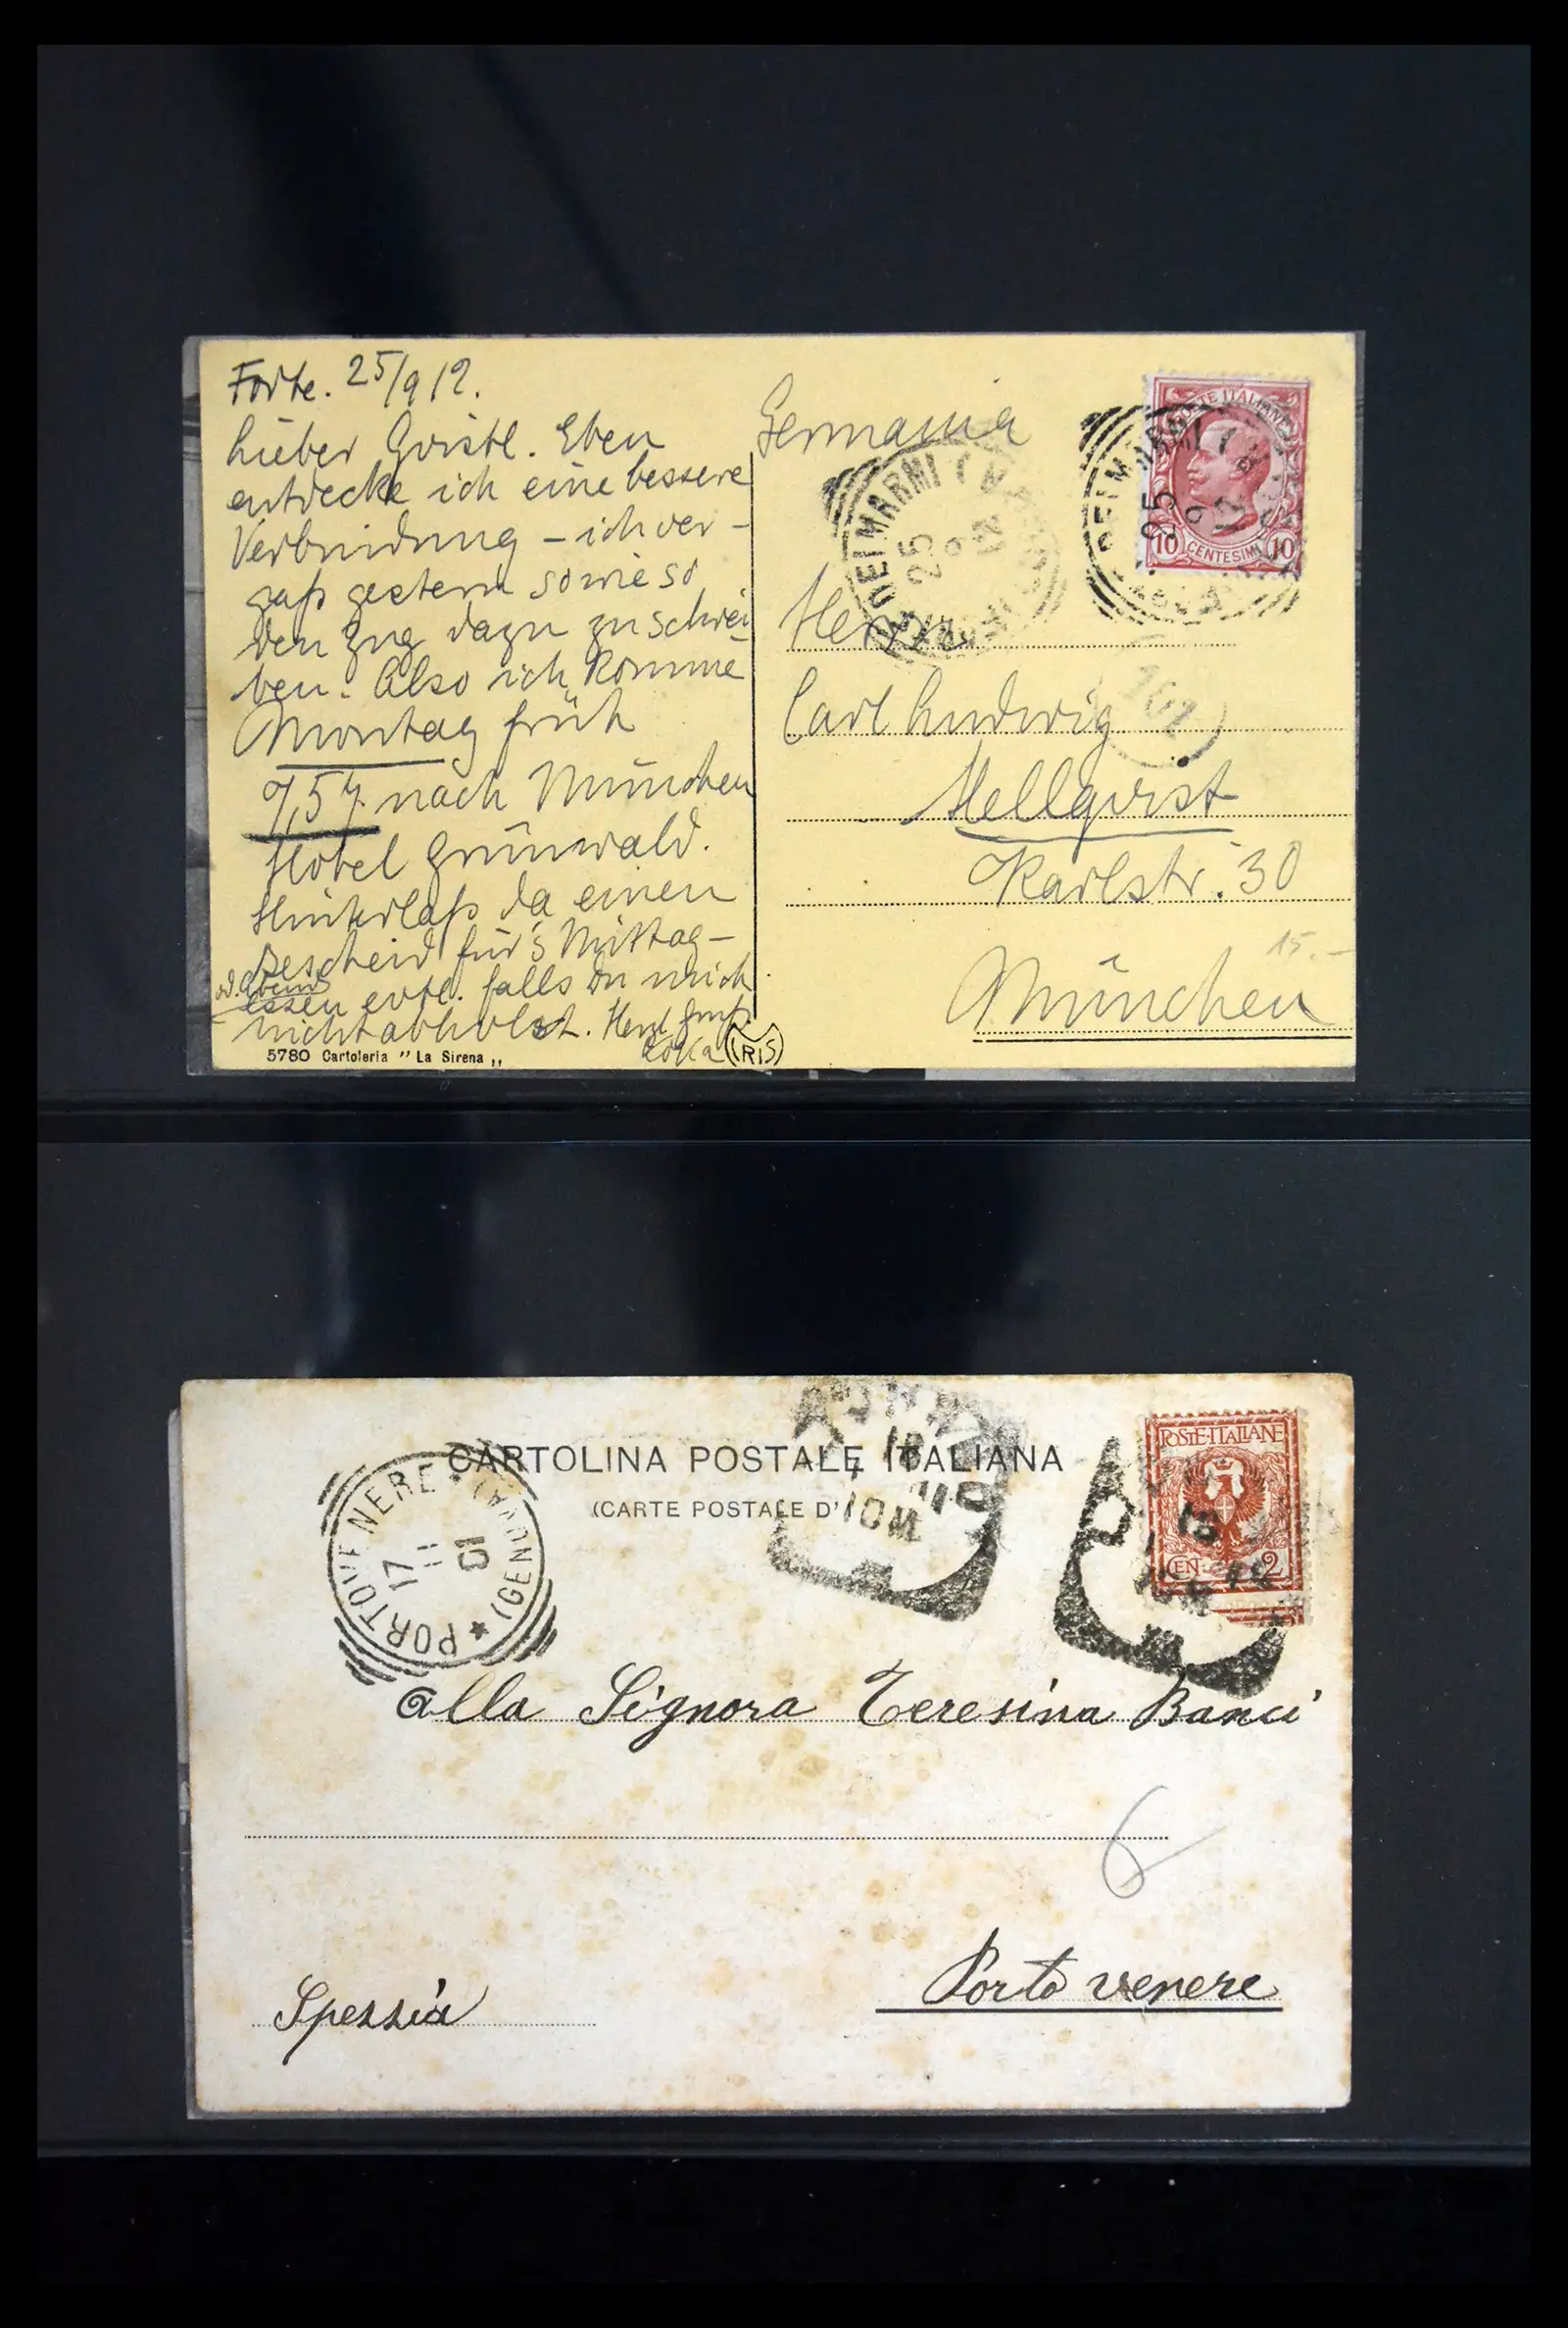 Forte. 25/9 12.
Lieber Qvistl. Eben
entdecke ich eine bessere
Verbindung – ich ver-
gaß gestern sowieso
den Zug dazu zu schrei
ben. Also ich komme
Montag früh
7,57 nach München
Hotel Grünwald.
Hinterlaß da einen
Bescheid für's Mittag-
od. Abend
essen evtl. falls Du mich
nicht abholst. Herzl Gruß
5780 Cartoleria "La Sirena„
IRIS
Germania
POSTE ITALIANE
10 CENTESIMI 10
DEI MARMI
25 9 12
DEI MARMI
25 9 12
Herrn
Carl Ludwig
Hellqvist
Karlstr. 30
15.–
München
CARTOLINA POSTALE ITALIANA
(CARTE POSTALE D'
POSTE·ITALIANE
CEN· 2
PORTOVENERE (GENOVA)
17 11 01
Alla Signora Teresina Banci
6
Porto venere
Spezzia